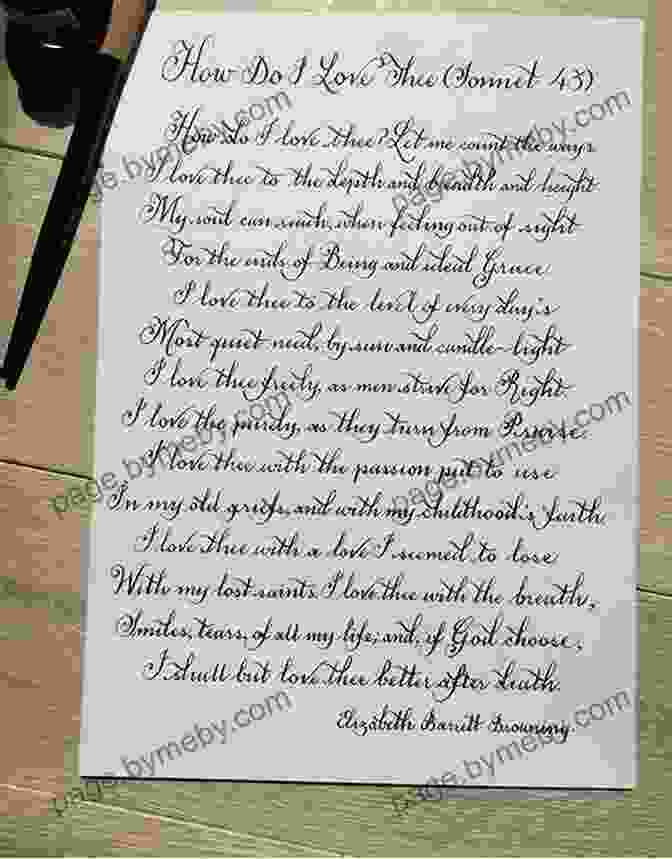 How Do I Love Thee (Sonnet 43)
How do I love thee? Let me count the ways
I love thee to the depth and breadth and height
My soul can reach, when feeling out of sight
For the ends of Being and ideal Grace
I love thee to the level of every day's
Most quiet need, by sun and candle-light
I love thee freely, as men strive for Right.
I love the purely, as they turn from Praise.
I love thee with the passion put to use
In my old griefs, and with my childhood's faith
I love thee with a love I seemed to lose
With my lost saints. I love thee with the breath,
Smiles, tears, of all my life; and, if God choose,
I shall but love thee better after death.
Elizabeth Barrett Browning.
page.bymeby.com
page.bymeby.com
page.bymeby.com
page.bymeby.com
page.bymeby.com
page.bymeby.com